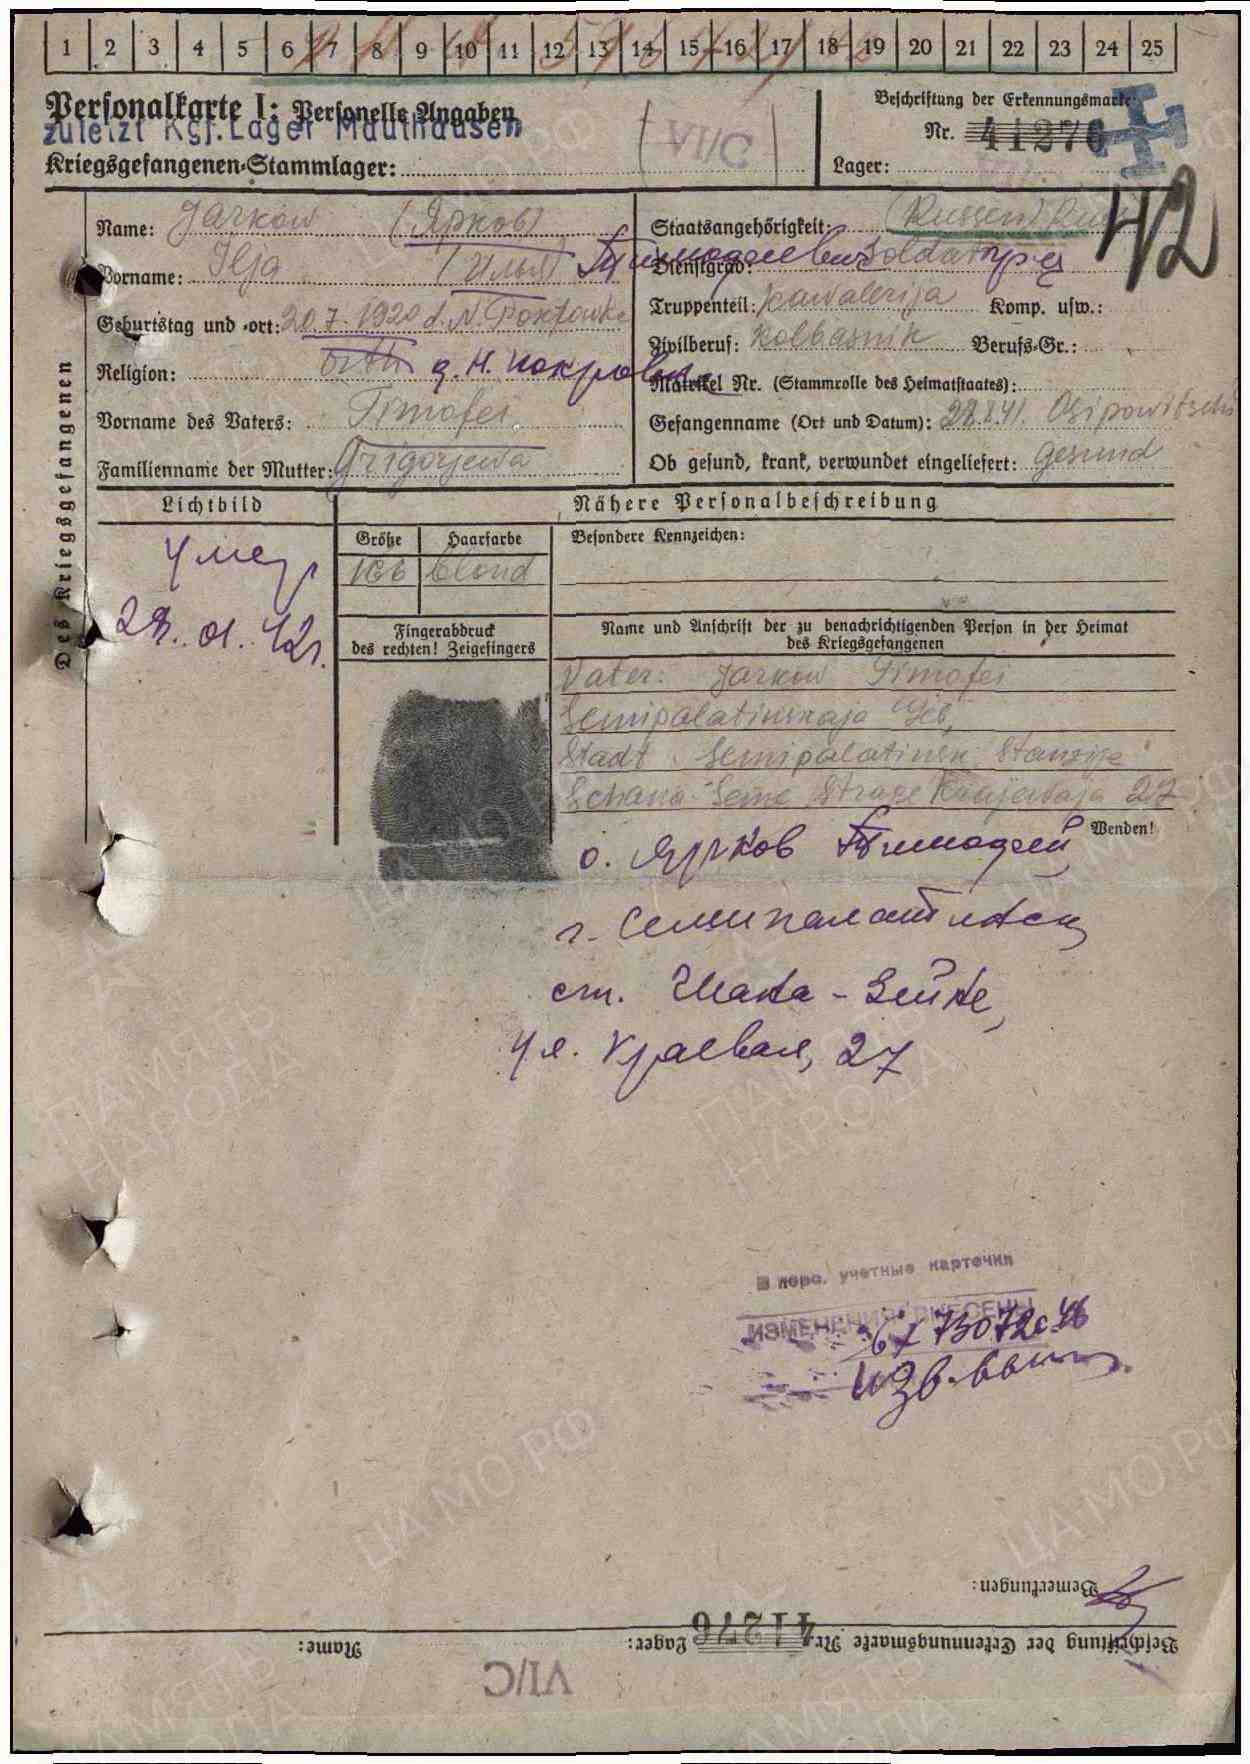 1 2 3 4 5 6 7 8 9 10 11 12 13 14 15 16 17 18 19 20 21 22 23 24 25
Personalkarte I: Personelle Angaben
zuletzt Kgf. Lager Mauthausen
Kriegsgefangenen-Stammlager:
VI/C
Beschriftung der Erkennungsmarke
Nr. 41276
Lager:
42
Des Kriegsgefangenen
Name: Jarkow (Ярков)
Vorname: Ilja (Илья) Тимофеевич
Geburtstag und -ort: 20.7.1920 d. N. Pokrowka
Religion: orth д. Н. Покровка
Vorname des Vaters: Timofei
Familienname der Mutter: Grigorjewa
Staatsangehörigkeit: (Russen)
Dienstgrad: Soldat
Truppenteil: Kawalerija Komp. usw.:
Zivilberuf: Kolbasnik Berufs-Gr.:
Matrikel Nr. (Stammrolle des Heimatstaates):
Gefangenname (Ort und Datum): 28.8.41. Osipowitschi
Ob gesund, krank, verwundet eingeliefert: gesund
Lichtbild
Умер
28.01.42г.
Nähere Personalbeschreibung
Größe Haarfarbe
166 blond
Besondere Kennzeichen:
Fingerabdruck
des rechten! Zeigefingers
Name und Anschrift der zu benachrichtigenden Person in der Heimat
des Kriegsgefangenen
Vater: Jarkow Timofei
Semipalatinskaja Geb,
Stadt Semipalatinsk Stanzije
Schana-Seme Strase Krajewaja 27
Wenden!
о. Ярков Тимофей
г. Семипалатинск
ст. Жана-Земе,
ул. Краевая, 27
В перс. учетные карточки
ИЗМЕНЕНИЯ ВНЕСЕНЫ
Изв.
Bemerkungen:
Beschriftung der Erkennungsmarke Nr. 41276 Lager: Name:
VI/C
ПАМЯТЬ НАРОДА
ЦА МО РФ